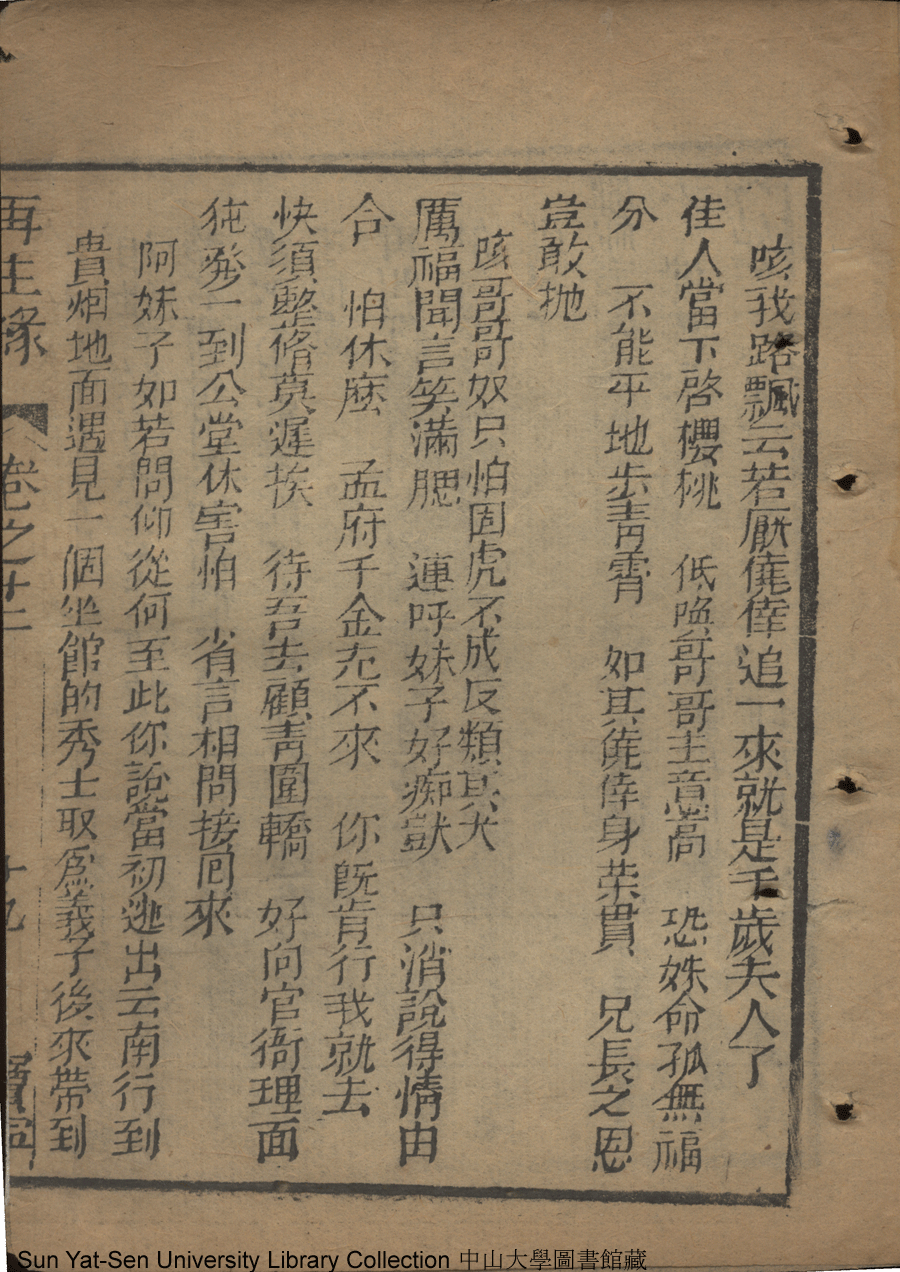 咳我路飄云若厭僥倖追一來就是千歲夫人了
佳人當下啓櫻桃　低喚哥哥主意高　恐妹命孤無福
分　不能平地步靑霄　如其僥倖身荣貫　兄長之恩
豈敢抛
咳哥哥奴只怕固虎不成反類其犬
厲福聞言笑滿腮　連呼妹子好痴獃　只消說得情由
合　怕休麽　孟府千金冘不來　你旣肯行我就去
快須整脩莫遲挨　待吾去顧靑圍轎　好向官衙理面
㹠發一到公堂休害怕　省言相問接囘來
阿妹子如若問仰從何至此你說當初逃出云南行到
貴烟地面遇見一個坐館的秀士取爲義子後來帶到
再生緣　卷之十二　十九　寳寧
Sun Yat-Sen University Library Collection 中山大學圖書館藏